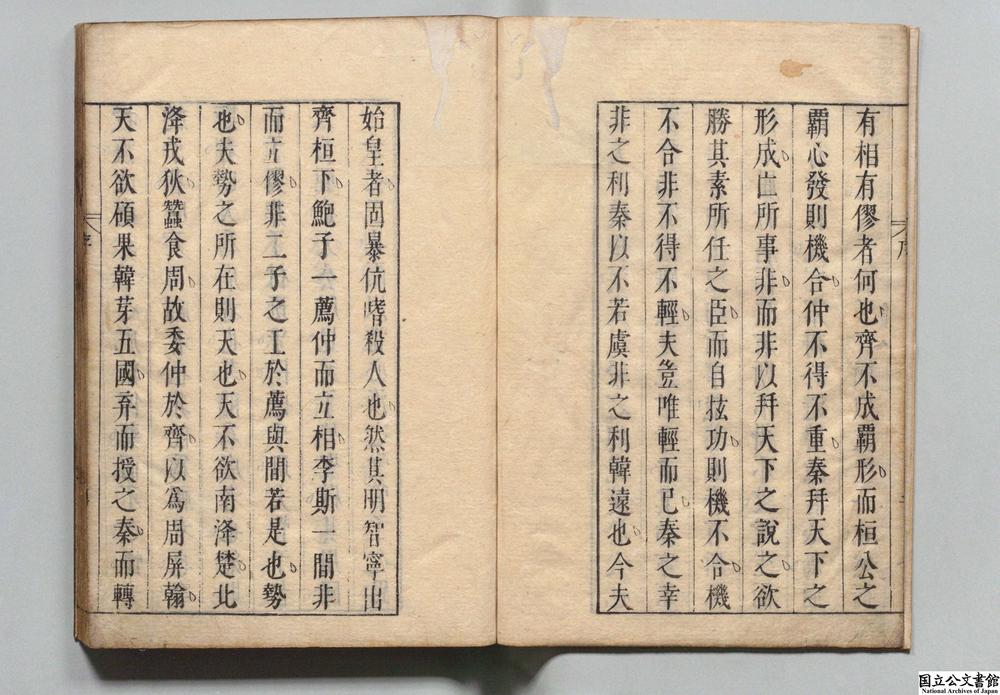 有相有僇者何也齊不成覇形而桓公之
覇心發則機合仲不得不重秦幷天下之
形成亡所事非而非以幷天下之說之欲
勝其素所任之臣而自扻功則機不合機
不合非不得不輕夫豈唯輕而已秦之幸
非之利秦以不若虞非之利韓遠也今夫
序
始皇者固暴伉嗜殺人也然其明智寧出
齊桓下鮑子一薦仲而立相李斯一間非
而立僇非二子之工於薦與間若是也勢
也夫勢之所在則天也天不欲南洚楚北
洚戎狄蠶食周故委仲於齊以爲周屏翰
天不欲碩果韓芽五國弃而授之秦而轉
序
国立公文書館
National Archives of Japan